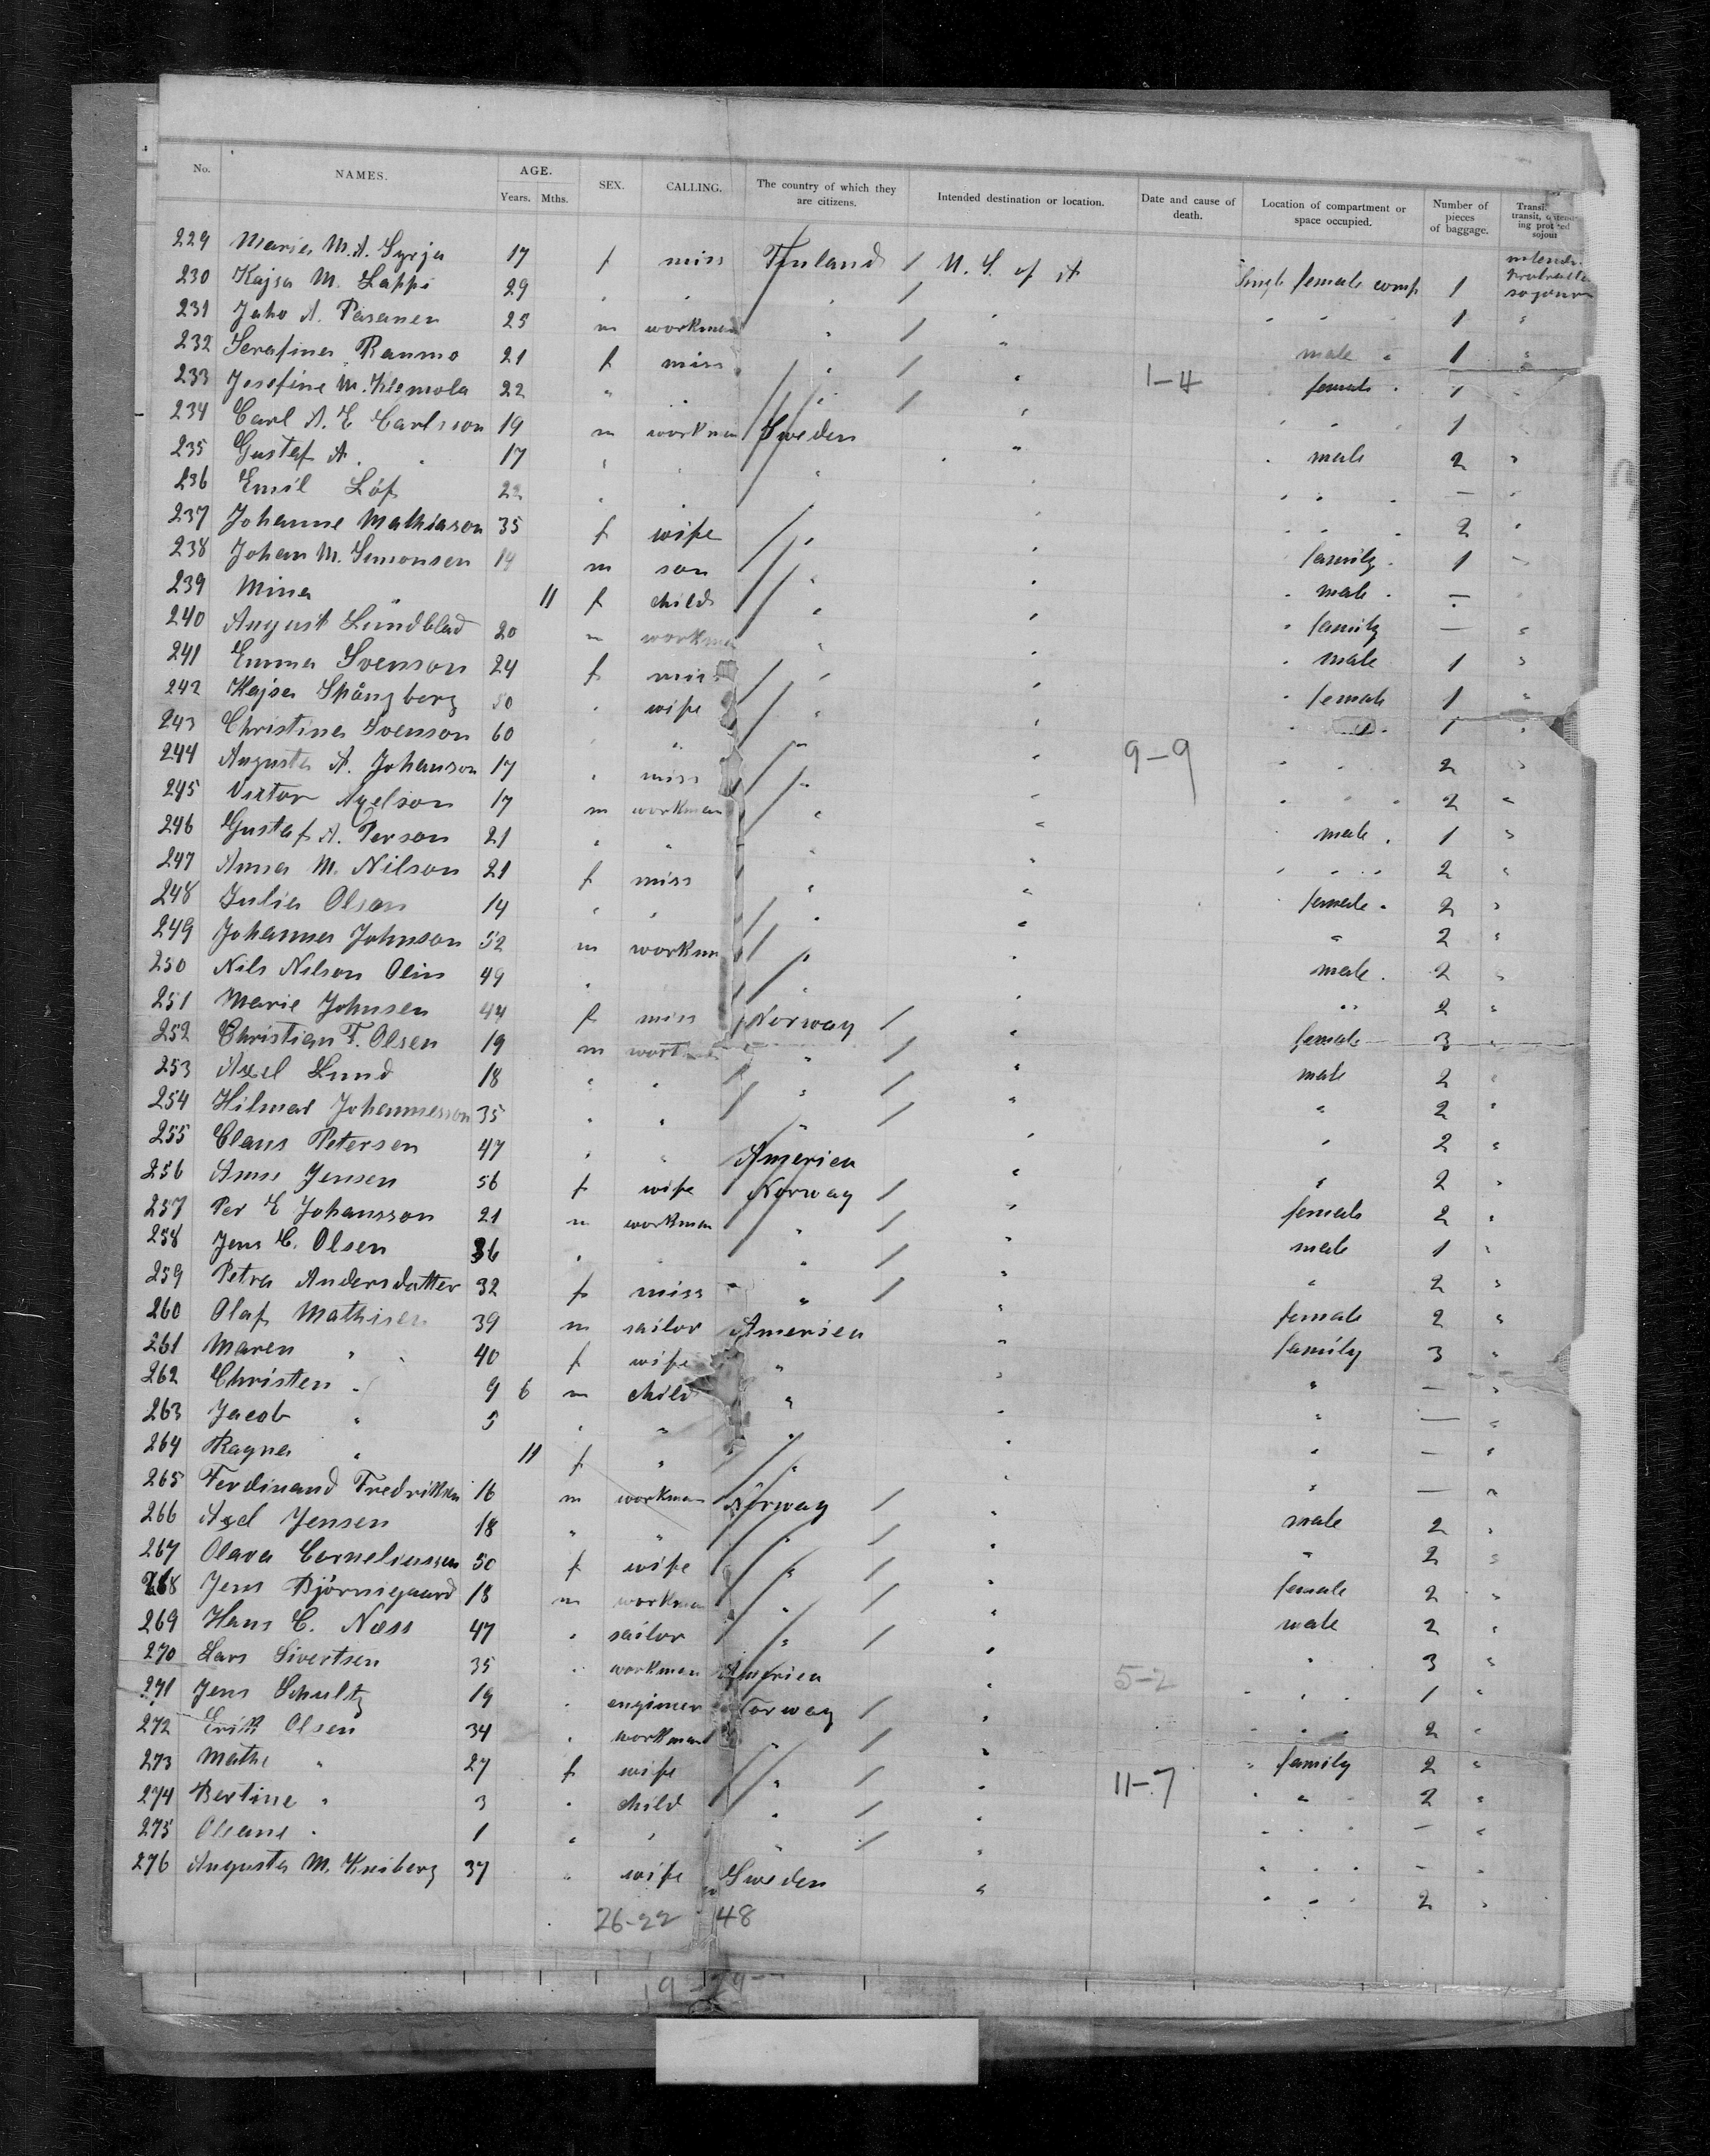 No. NAMES. AGE. Years. Mths. SEX. CALLING. The country of which they are citizens. Intended destination or location. Date and cause of death. Location of compartment or space occupied. Number of pieces of baggage. Transit,
229 Maria M. A. Syrja 17 f miss Finland / U. S. of A Single female comp 1
230 Kajsa M. Lappi 29 " " " / " " " " 1 "
231 Juho A. Pasanen 25 m workman " / " male " 1 "
232 Serafina Raumo 21 f miss " / " female " 1 "
233 Josefina M. Klemola 22 " " " / " 1-4 " " " 1 "
234 Carl A. E Carlsson 19 m workman Sweden " " male 2 "
235 Gustaf A. " 17 " " " " " " " — "
236 Emil Löf 22 " " " " " " 2 "
237 Johanne Mathiason 35 f wife " " family " 1 "
238 Johan M. Simonsen 14 m son " " " male " — "
239 Mina " 11 f child " " " family — "
240 August Lundblad 20 m workman " " " male 1 "
241 Emma Svenson 24 f miss " " " female 1 "
242 Kajsa Spångberg 50 " wife " " " " 1 "
243 Christina Svenson 60 " " " " 9-9 " " 2 "
244 Augusta A. Johanson 17 " miss " " " " " 2 "
245 Victor Axelson 17 m workman " " male " 1 "
246 Gustaf A. Person 21 " " " " " " " 2 "
247 Anna M. Nilson 21 f miss " " female " 2 "
248 Julia Olson 14 " " " " " 2 "
249 Johannes Johnson 52 m workman " " male " 2 "
250 Nils Nilson Olin 49 " " " " " 2 "
251 Marie Johnsen 44 f miss Norway / " female 3 "
252 Christian F. Olsen 19 m " / " male 2 "
253 Axel Lund 18 " " " / " " 2 "
254 Hilmar Johannesson 35 " " " / " " 2 "
255 Claus Petersen 47 " " America " " 2 "
256 Anne Jensen 56 f wife Norway / " female 2 "
257 Per E Johansson 21 m workman " / " male 1 "
258 Jens C. Olsen 36 " " " / " " 2 "
259 Petra Andersdatter 32 f miss " / " female 2 "
260 Olaf Mathisen 39 m sailor America " family 3 "
261 Maren " 40 f wife " " " — "
262 Christen " 9 6 m child " " " — "
263 Jacob " 5 " " " " " — "
264 Ragna " 11 f " " " " — "
265 Ferdinand Fredriksen 16 m workman Norway / " male 2 "
266 Axel Jensen 18 " " " / " " 2 "
267 Olava Corneliussen 50 f wife " / " female 2 "
268 Jens Björnsgaard 18 m workman " / " male 2 "
269 Hans C. Næss 47 " sailor " / " " 3 "
270 Lars Sivertsen 35 " workman America " 5-2 " " " 1 "
271 Jens Schultz 19 " engineer Norway / " " " " 2 "
272 Erik Olsen 34 " workman " / " " family 2 "
273 Mathe " 27 f wife " / " 11-7 " " " 2 "
274 Bertine " 3 " child " / " " " " — "
275 Oleane " 1 " " " / " " " " — "
276 Augusta M. Kniberg 37 " wife Sweden " " " " 2 "
26-22 48